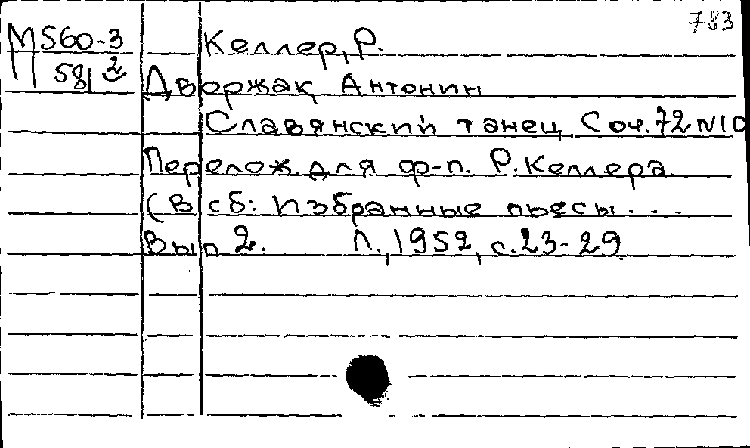 783
М560-3 Келлер, Р.
581 2 Дворжак, Антонин
Славянский танец Соч. 72 N10
Перелож. для ф-п. Р. Келлера
(В сб: Избранные пьесы...
Вып 2. Л., 1952, с. 23-29